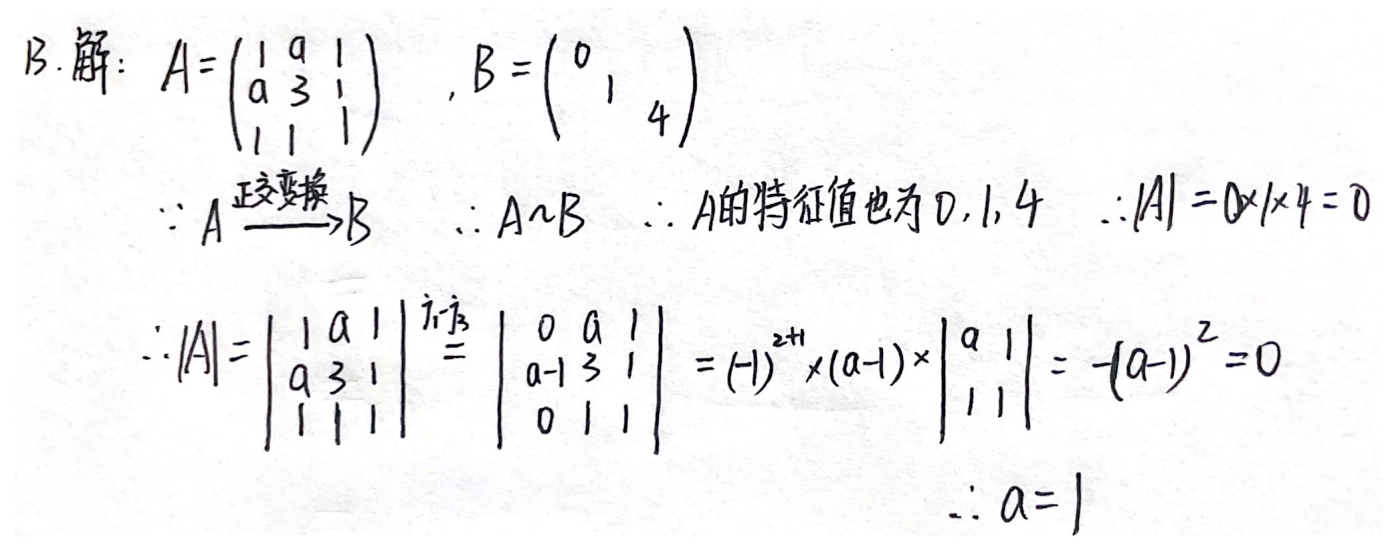 B. 解: A = (1 a 1; a 3 1; 1 1 1) , B = (0 1 4)
∵ A 正交变换→ B ∴ A~B ∴ A的特征值也为0, 1, 4 ∴ |A| = 0×1×4 = 0
∴ |A| = |1 a 1; a 3 1; 1 1 1| j₁-j₃ = |0 a 1; a-1 3 1; 0 1 1| = (-1)^{2+1} × (a-1) × |a 1; 1 1| = -(a-1)² = 0
∴ a = 1